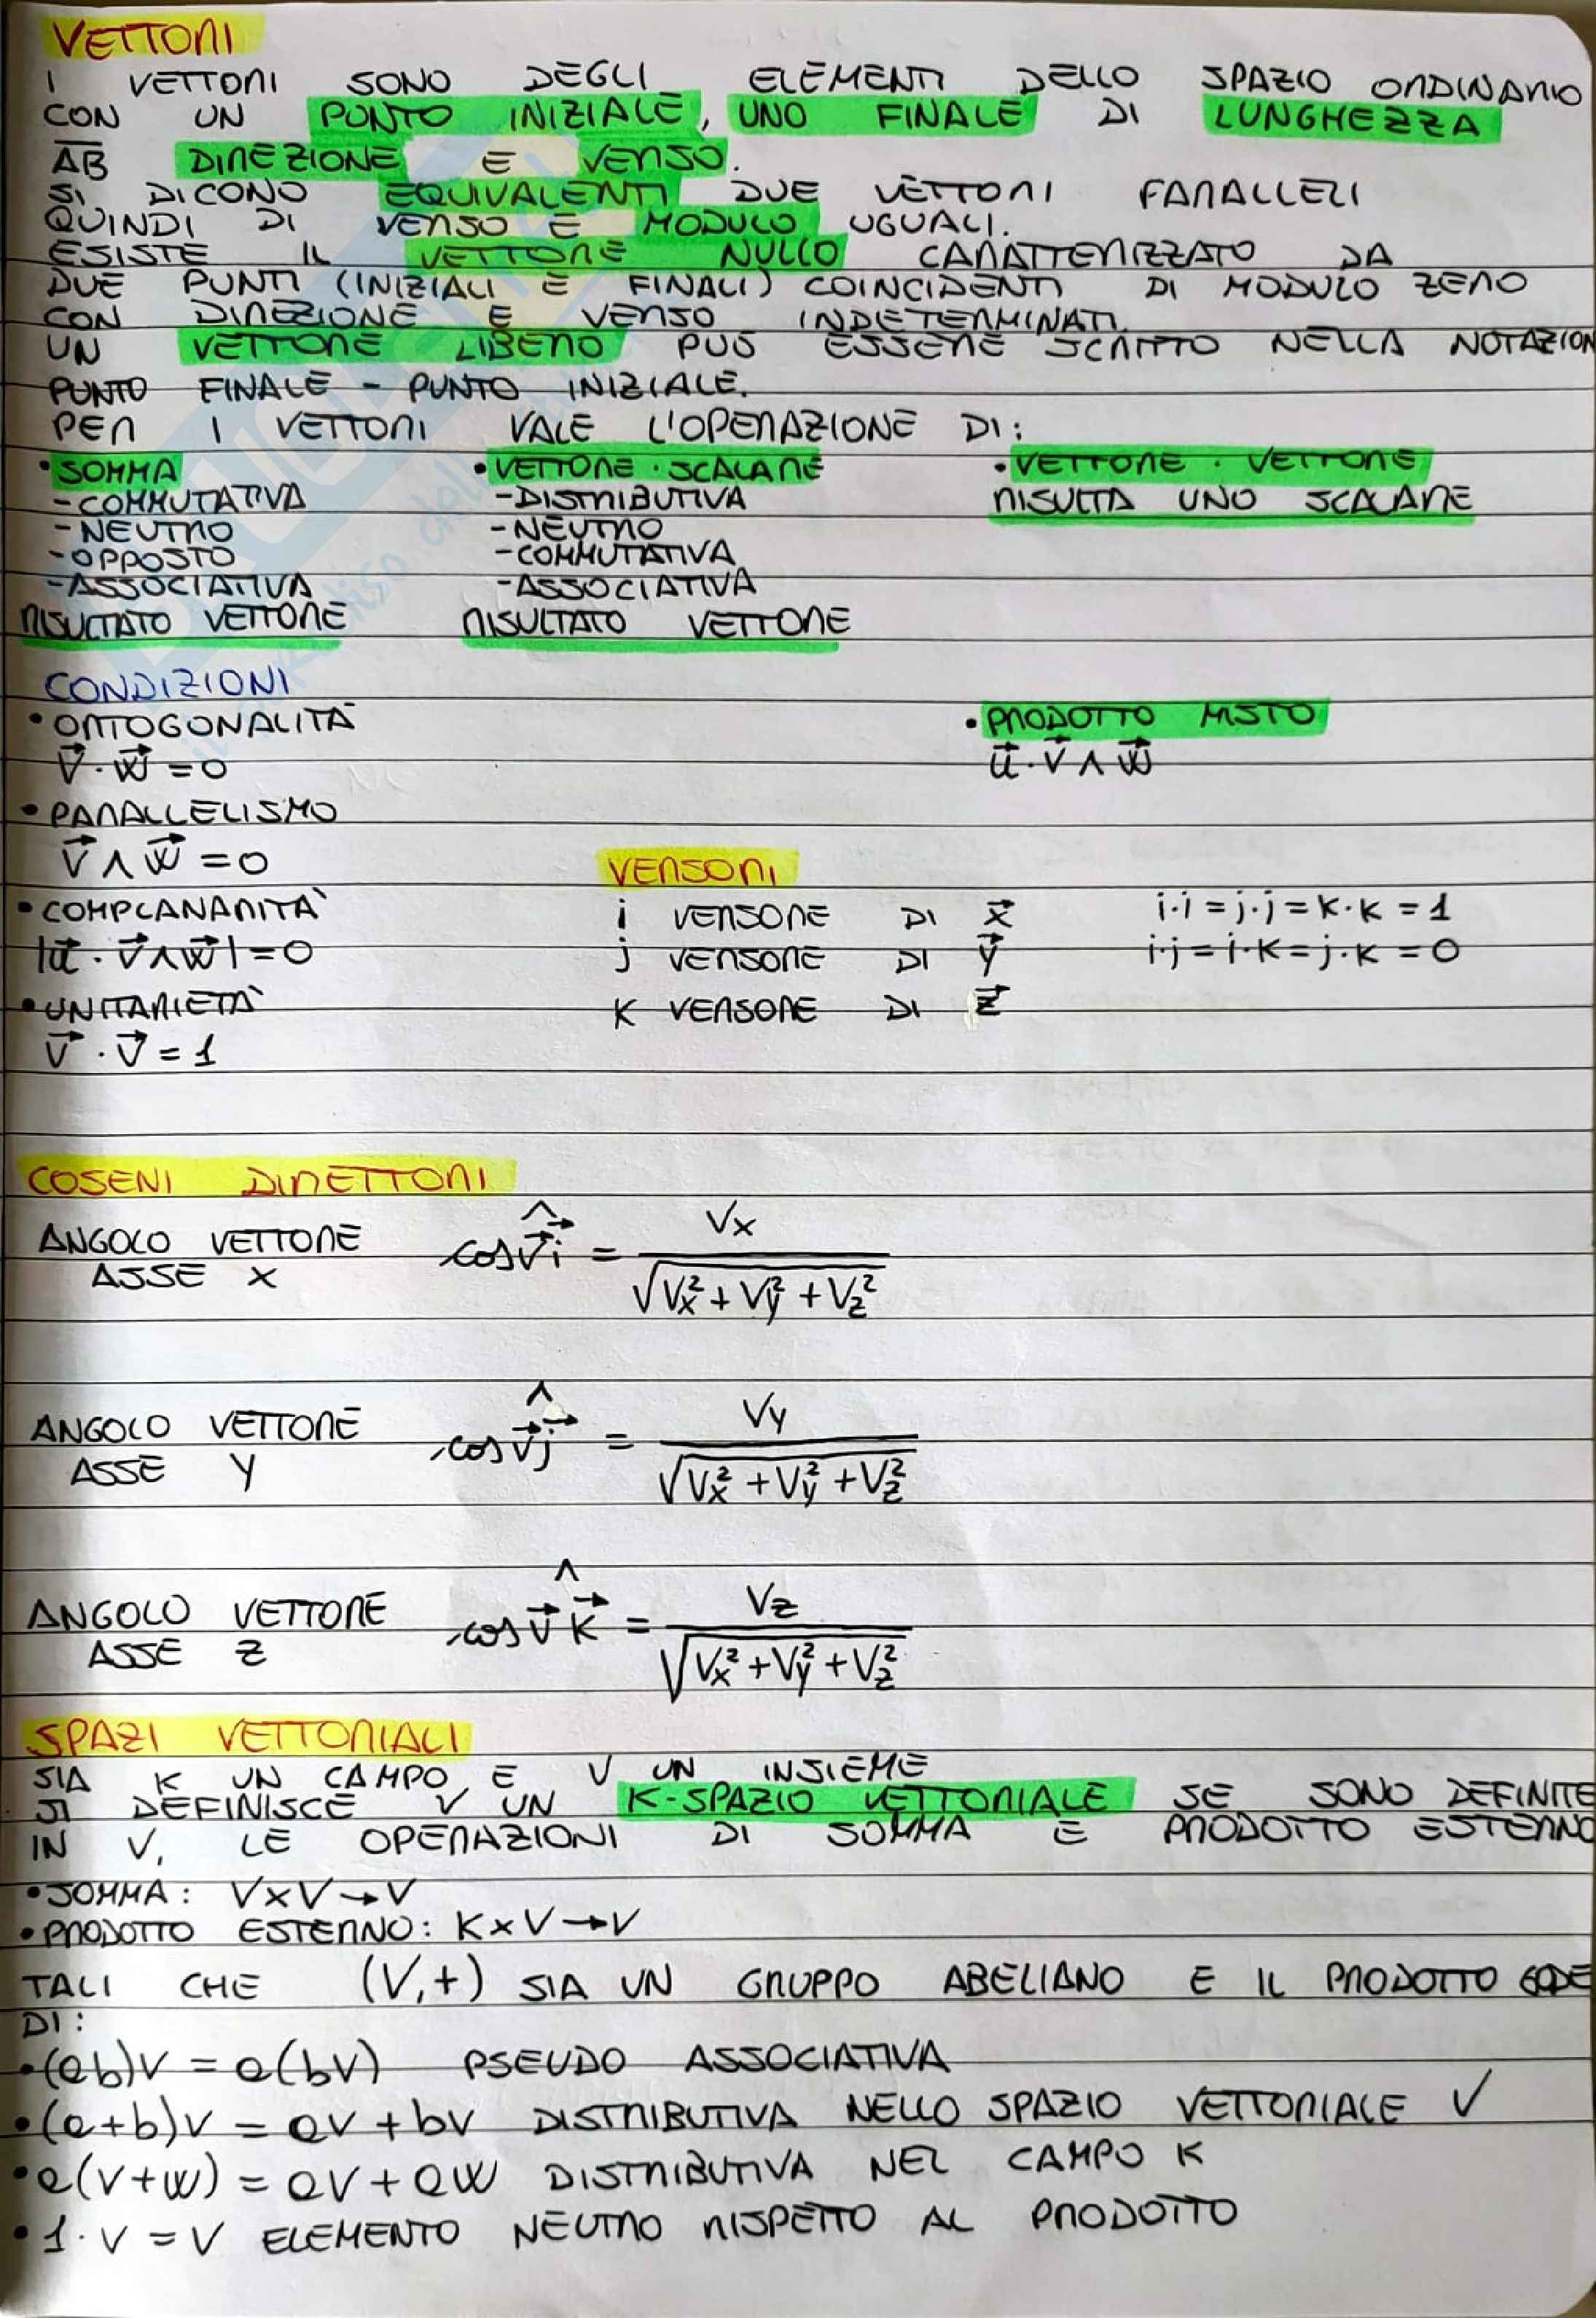 VETTORI
I VETTORI SONO DEGLI ELEMENTI DELLO SPAZIO ORDINARIO
CON UN PUNTO INIZIALE, UNO FINALE DI LUNGHEZZA
AB DIREZIONE E VERSO.
SI DICONO EQUIVALENTI DUE VETTORI PARALLELI
QUINDI DI VERSO E MODULO UGUALI.
ESISTE IL VETTORE NULLO CARATTERIZZATO DA
DUE PUNTI (INIZIALI E FINALI) COINCIDENTI DI MODULO ZERO
CON DIREZIONE E VERSO INDETERMINATI.
UN VETTORE LIBERO PUÓ ESSERE SCRITTO NELLA NOTAZION
PUNTO FINALE - PUNTO INIZIALE.
PER I VETTORI VALE L'OPERAZIONE DI:
• SOMMA • VETTORE · SCALARE • VETTORE · VETTORE
- COMMUTATIVA - DISTRIBUTIVA RISULTA UNO SCALARE
- NEUTRO - NEUTRO
- OPPOSTO - COMMUTATIVA
- ASSOCIATIVA - ASSOCIATIVA
RISULTATO VETTORE RISULTATO VETTORE
CONDIZIONI
• ORTOGONALITÀ • PRODOTTO MISTO
v⃗ · w⃗ = 0 u⃗ · v⃗ ∧ w⃗
• PARALLELISMO
v⃗ ∧ w⃗ = 0 VERSORI
• COMPLANARITÀ i VERSORE DI x⃗ i·i = j·j = k·k = 1
|u⃗ · v⃗ ∧ w⃗| = 0 j VERSORE DI y⃗ i·j = i·k = j·k = 0
• UNITARIETÀ k VERSORE DI z⃗
v⃗ · v⃗ = 1
COSENI DIRETTORI
ANGOLO VETTORE ASSE X cos v⃗^i⃗ = Vx / √(Vx² + Vy² + Vz²)
ANGOLO VETTORE ASSE Y cos v⃗^j⃗ = Vy / √(Vx² + Vy² + Vz²)
ANGOLO VETTORE ASSE Z cos v⃗^k⃗ = Vz / √(Vx² + Vy² + Vz²)
SPAZI VETTORIALI
SIA K UN CAMPO E V UN INSIEME
SI DEFINISCE V UN K-SPAZIO VETTORIALE SE SONO DEFINITE
IN V, LE OPERAZIONI DI SOMMA E PRODOTTO ESTERNO
• SOMMA: V×V→V
• PRODOTTO ESTERNO: K×V→V
TALI CHE (V,+) SIA UN GRUPPO ABELIANO E IL PRODOTTO GODE
DI:
• (ab)v = a(bv) PSEUDO ASSOCIATIVA
• (a+b)v = av + bv DISTRIBUTIVA NELLO SPAZIO VETTORIALE V
• a(v+w) = av + aw DISTRIBUTIVA NEL CAMPO K
• 1·v = v ELEMENTO NEUTRO RISPETTO AL PRODOTTO